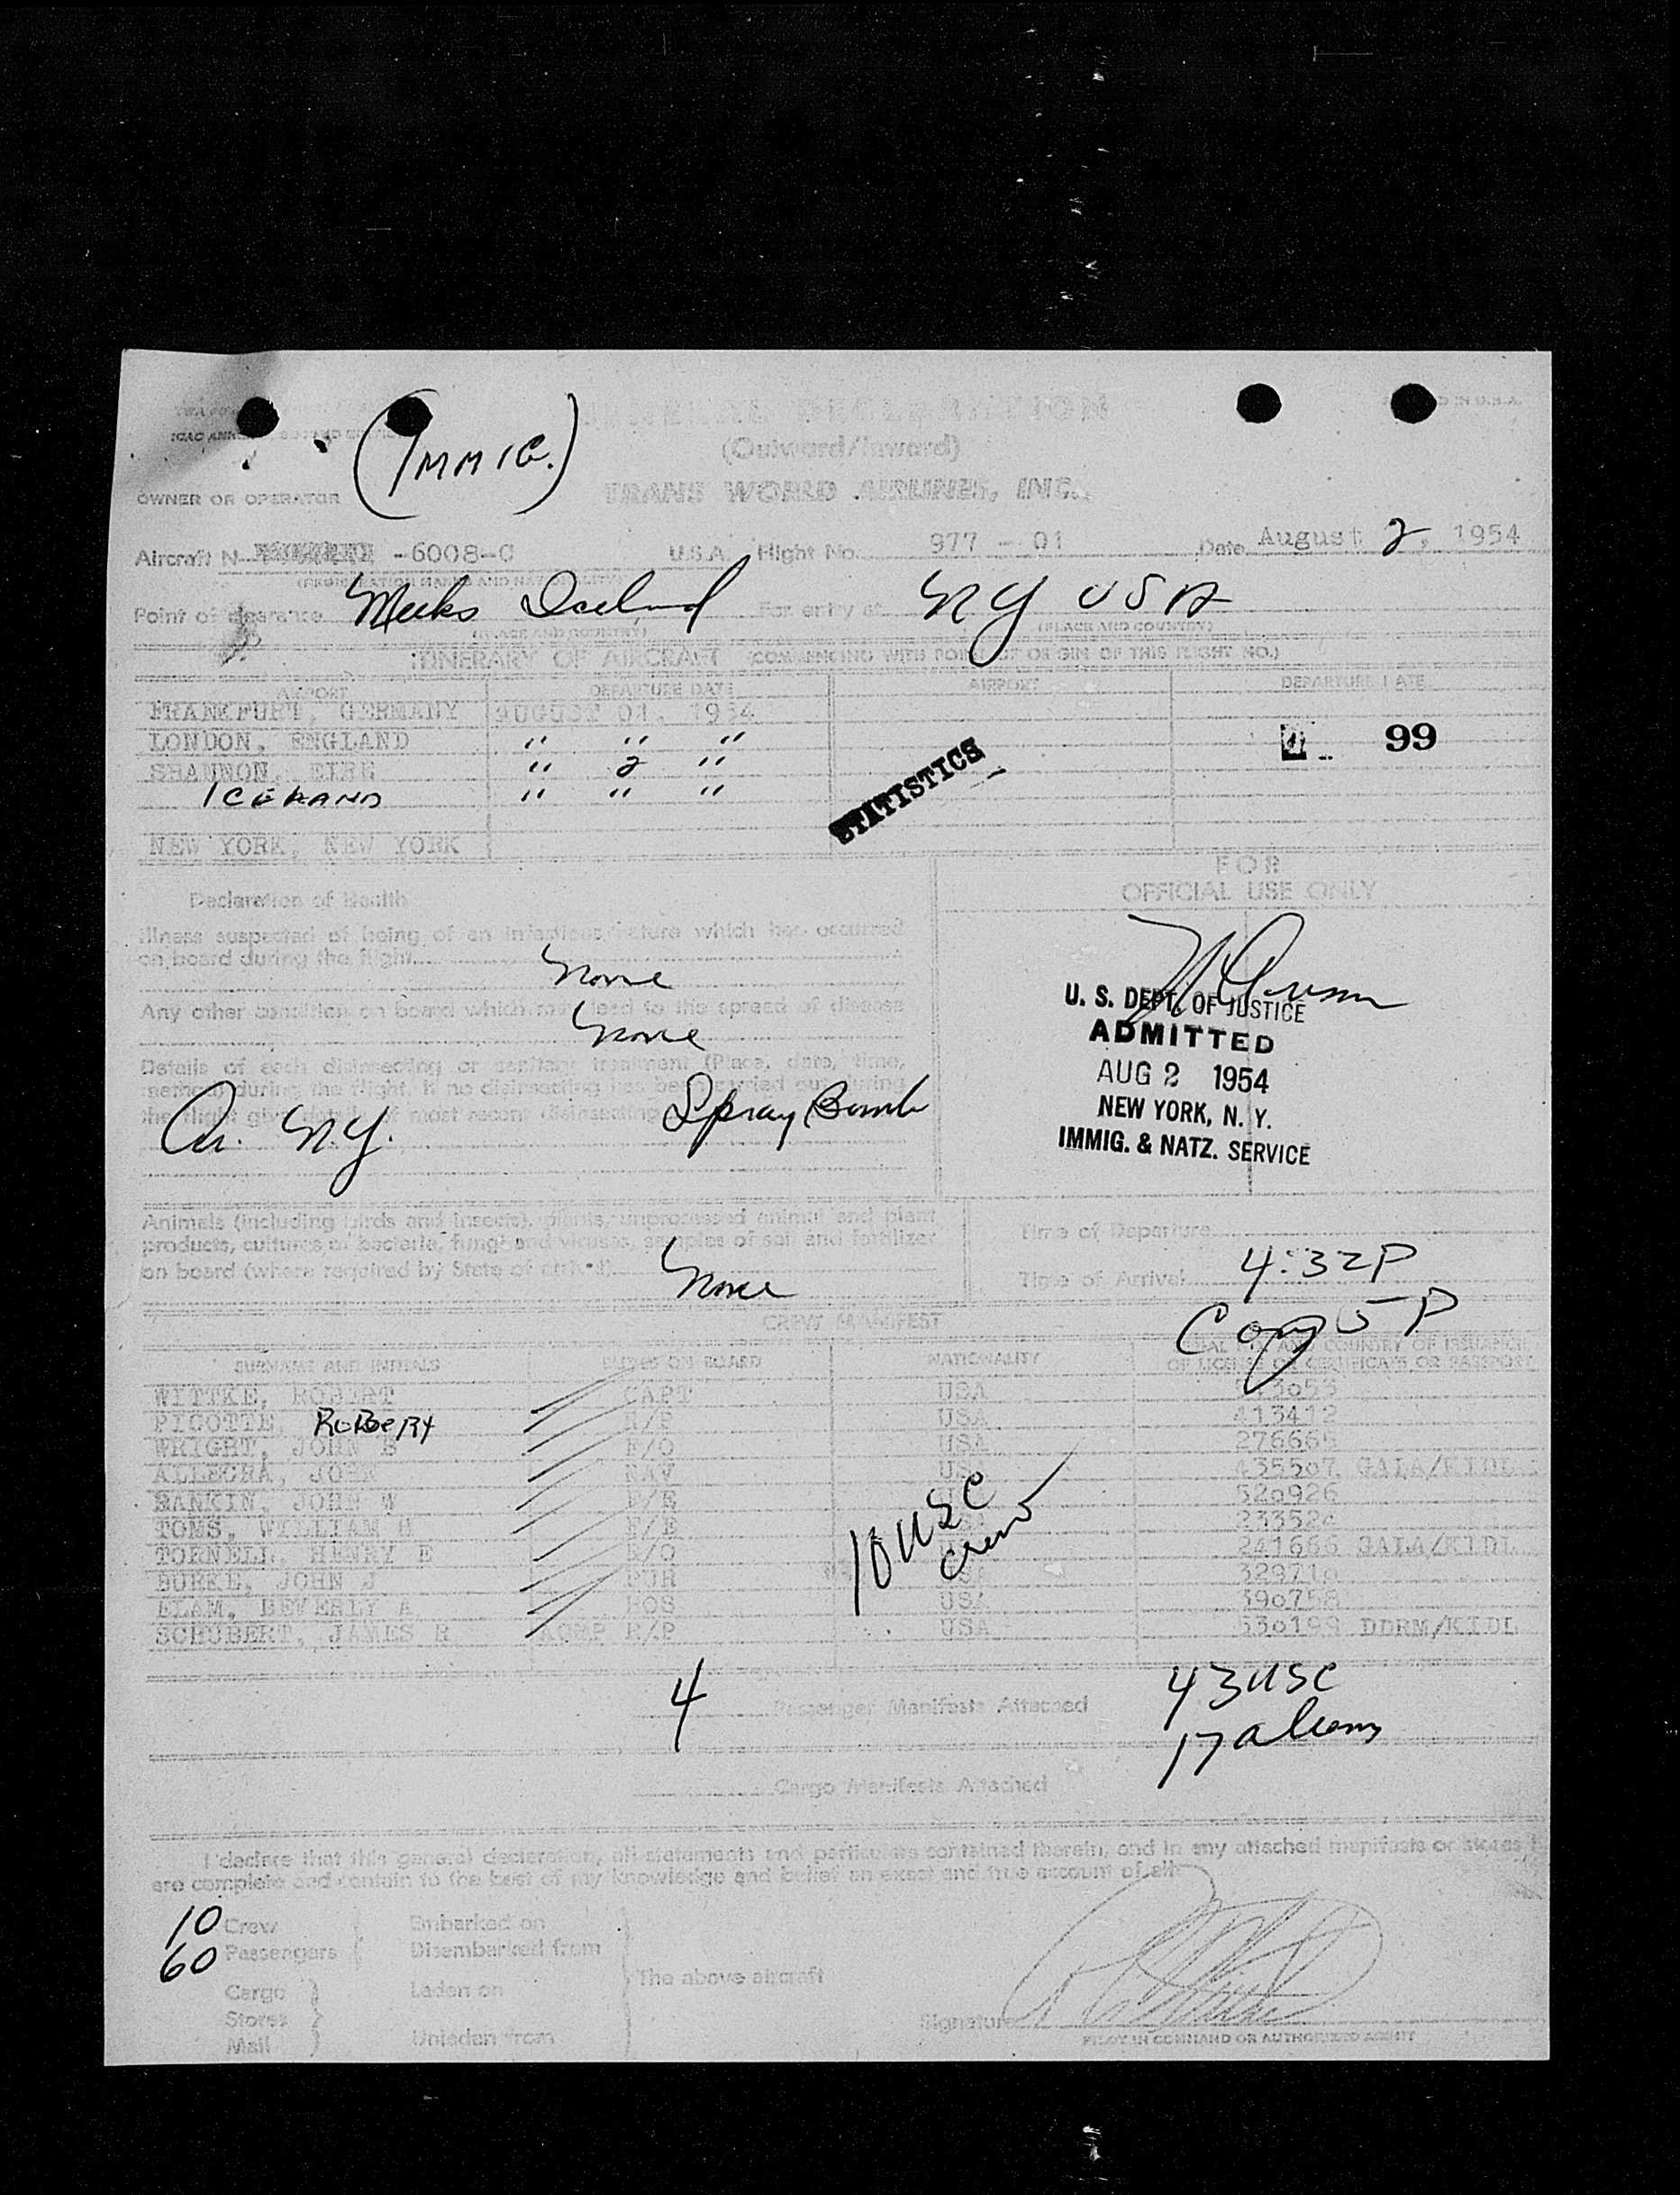 (IMMIG.)
(Outward/Inward)
OWNER OR OPERATOR TRANS WORLD AIRLINES, INC.
Aircraft N -6008-C U.S.A. Flight No. 977 - 01 Date August 2, 1954
(REGISTRATION MARKS AND NATIONALITY)
Point of clearance Meeks Iceland For entry at NY USA
(PLACE AND COUNTRY) (PLACE AND COUNTRY)
ITINERARY OF AIRCRAFT (COMMENCING WITH POINT OF ORIGIN OF THIS FLIGHT NO.)
AIRPORT DEPARTURE DATE AIRPORT DEPARTURE DATE
FRANKFURT, GERMANY AUGUST 01, 1954
LONDON, ENGLAND " " " 99
SHANNON, EIRE " 2 "
ICELAND " " "
STATISTICS
NEW YORK, NEW YORK
FOR
OFFICIAL USE ONLY
Declaration of Health
Illness suspected of being of an infectious nature which has occurred
on board during the flight
None
Any other condition on board which may lead to the spread of disease
None
Details of each disinsecting or sanitary treatment (Place, date, time,
method) during the flight. If no disinsecting has been carried out during
the flight give details of most recent disinsecting
Ar. N.Y. Spray Bomb
U. S. DEPT. OF JUSTICE
ADMITTED
AUG 2 1954
NEW YORK, N. Y.
IMMIG. & NATZ. SERVICE
Animals (including birds and insects), plants, unprocessed animal and plant
products, cultures of bacteria, fungi and viruses, samples of soil and fertilizer
on board (where required by State of arrival)
None
Time of Departure
Time of Arrival 4:32P
5 P
CREW MANIFEST
SURNAME AND INITIALS DUTIES ON BOARD NATIONALITY SERIAL NO. AND COUNTRY OF ISSUANCE
OF LICENSE OR CERTIFICATE OR PASSPORT
WITTKE, ROBERT CAPT USA
PICOTTE, ROBERT R/P USA 413412
WRIGHT, JOHN B F/O USA 276665
ALLEGRA, JOHN NAV USA 435507 GALA/KIDL
RANKIN, JOHN W F/E 320926
TOMS, WILLIAM H F/E USA 233524
TORNELL, HENRY E R/O 241666 GALA/KIDL
BURKE, JOHN J PUR USA 329710
ELAM, BEVERLY A HOS USA 390758
SCHUBERT, JAMES R ACMP R/P USA 330199 DDRM/KIDL
10 USC
Crew
4 Passenger Manifests Attached 43 USC
17 aliens
Cargo Manifests Attached
I declare that this general declaration, all statements and particulars contained therein, and in any attached manifests or stores
are complete and contain to the best of my knowledge and belief an exact and true account of all
10 Crew Embarked on
60 Passengers Disembarked from
The above aircraft
Cargo Laden on
Stores
Mail Unladen from
Signature
PILOT IN COMMAND OR AUTHORIZED AGENT